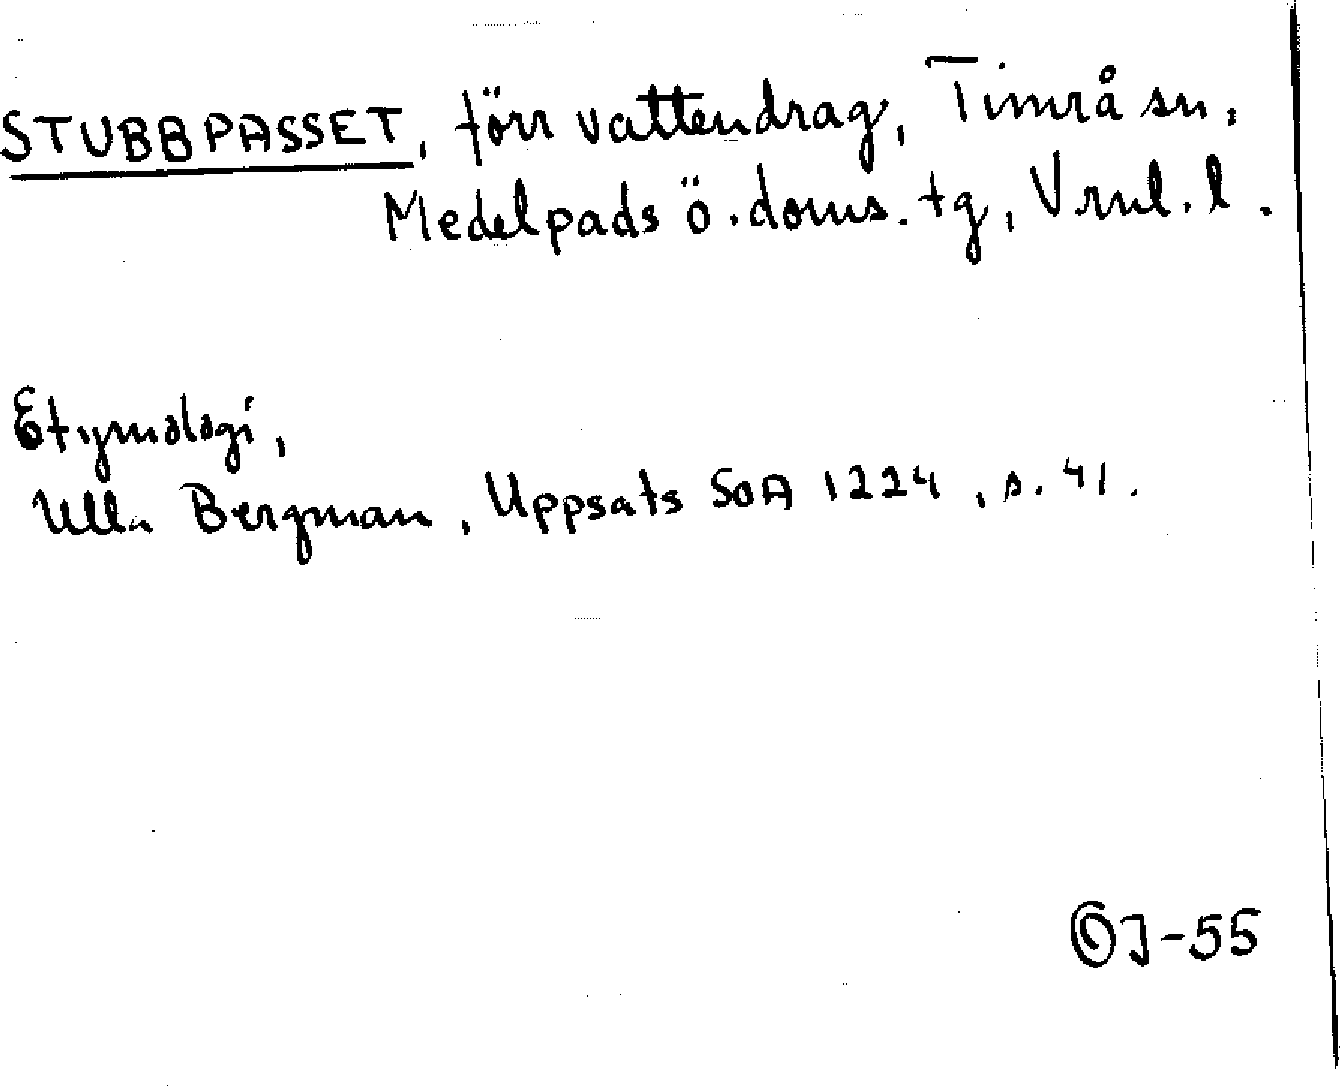 STUBBPASSET, förr vattendrag, Timrå sn,
Medelpads ö. doms. tg, Vrnl. l.
Etymologi,
Ulla Bergman, Uppsats SOA 1224, s. 41.
OJ-55